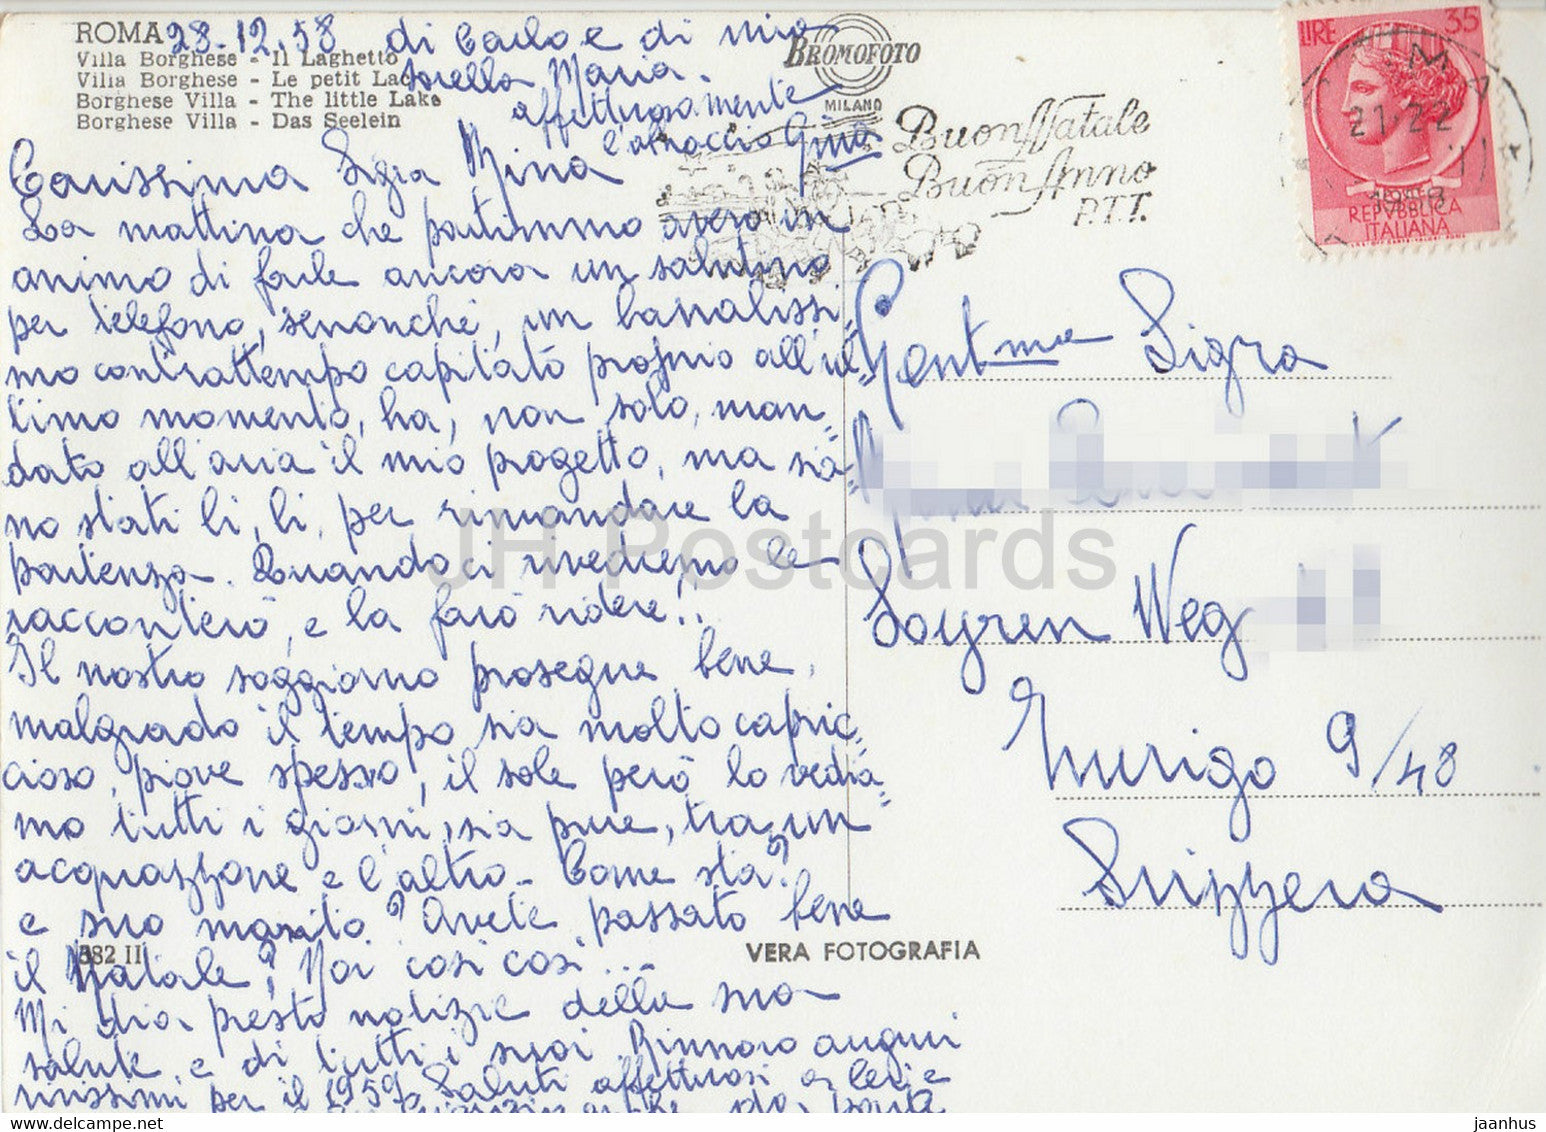 ROMA 28-12.58
Villa Borghese - Il Laghetto
Villa Borghese - Le petit Lac
Borghese Villa - The little Lake
Borghese Villa - Das Seelein
Carissima Sigra Rina
La mattina che partimmo avevo in
animo di farle ancora un salutino
per telefono, senonché, un banalissi=
mo contrattempo capitato proprio all'ul=
timo momento, ha, non solo, man=
dato all'aria il mio progetto, ma sia=
no stati lì, lì, per rimandare la
partenza. Quando ci rivedremo le
racconterò, e la farò ridere!!
Il nostro soggiorno prosegue bene,
malgrado il tempo sia molto capric=
cioso, piove spesso, il sole però lo vedia=
mo tutti i giorni, sia pure, tra un
acquazzone e l'altro - Come sta?
e suo marito? Avete passato bene
il Natale? Noi così così ...
Mi dia presto notizie della sua
salute e di tutti i suoi. Rinnovo auguri
vissimi per il 1959. Saluti affettuosi a lei e
anche da parte
di Carlo e di mia
sorella Maria.
affettuosamente
l'abbraccio Gina
BROMOFOTO
MILANO
Buon Natale
Buon Anno
P.T.T.
LIRE 35
M
21-22
POSTE
REPVBBLICA
ITALIANA
Gentma Sigra
Soyren Weg
Zurigo 9/48
Svizzera
382 II
VERA FOTOGRAFIA
JH Postcards
jaanhus
www.delcampe.net